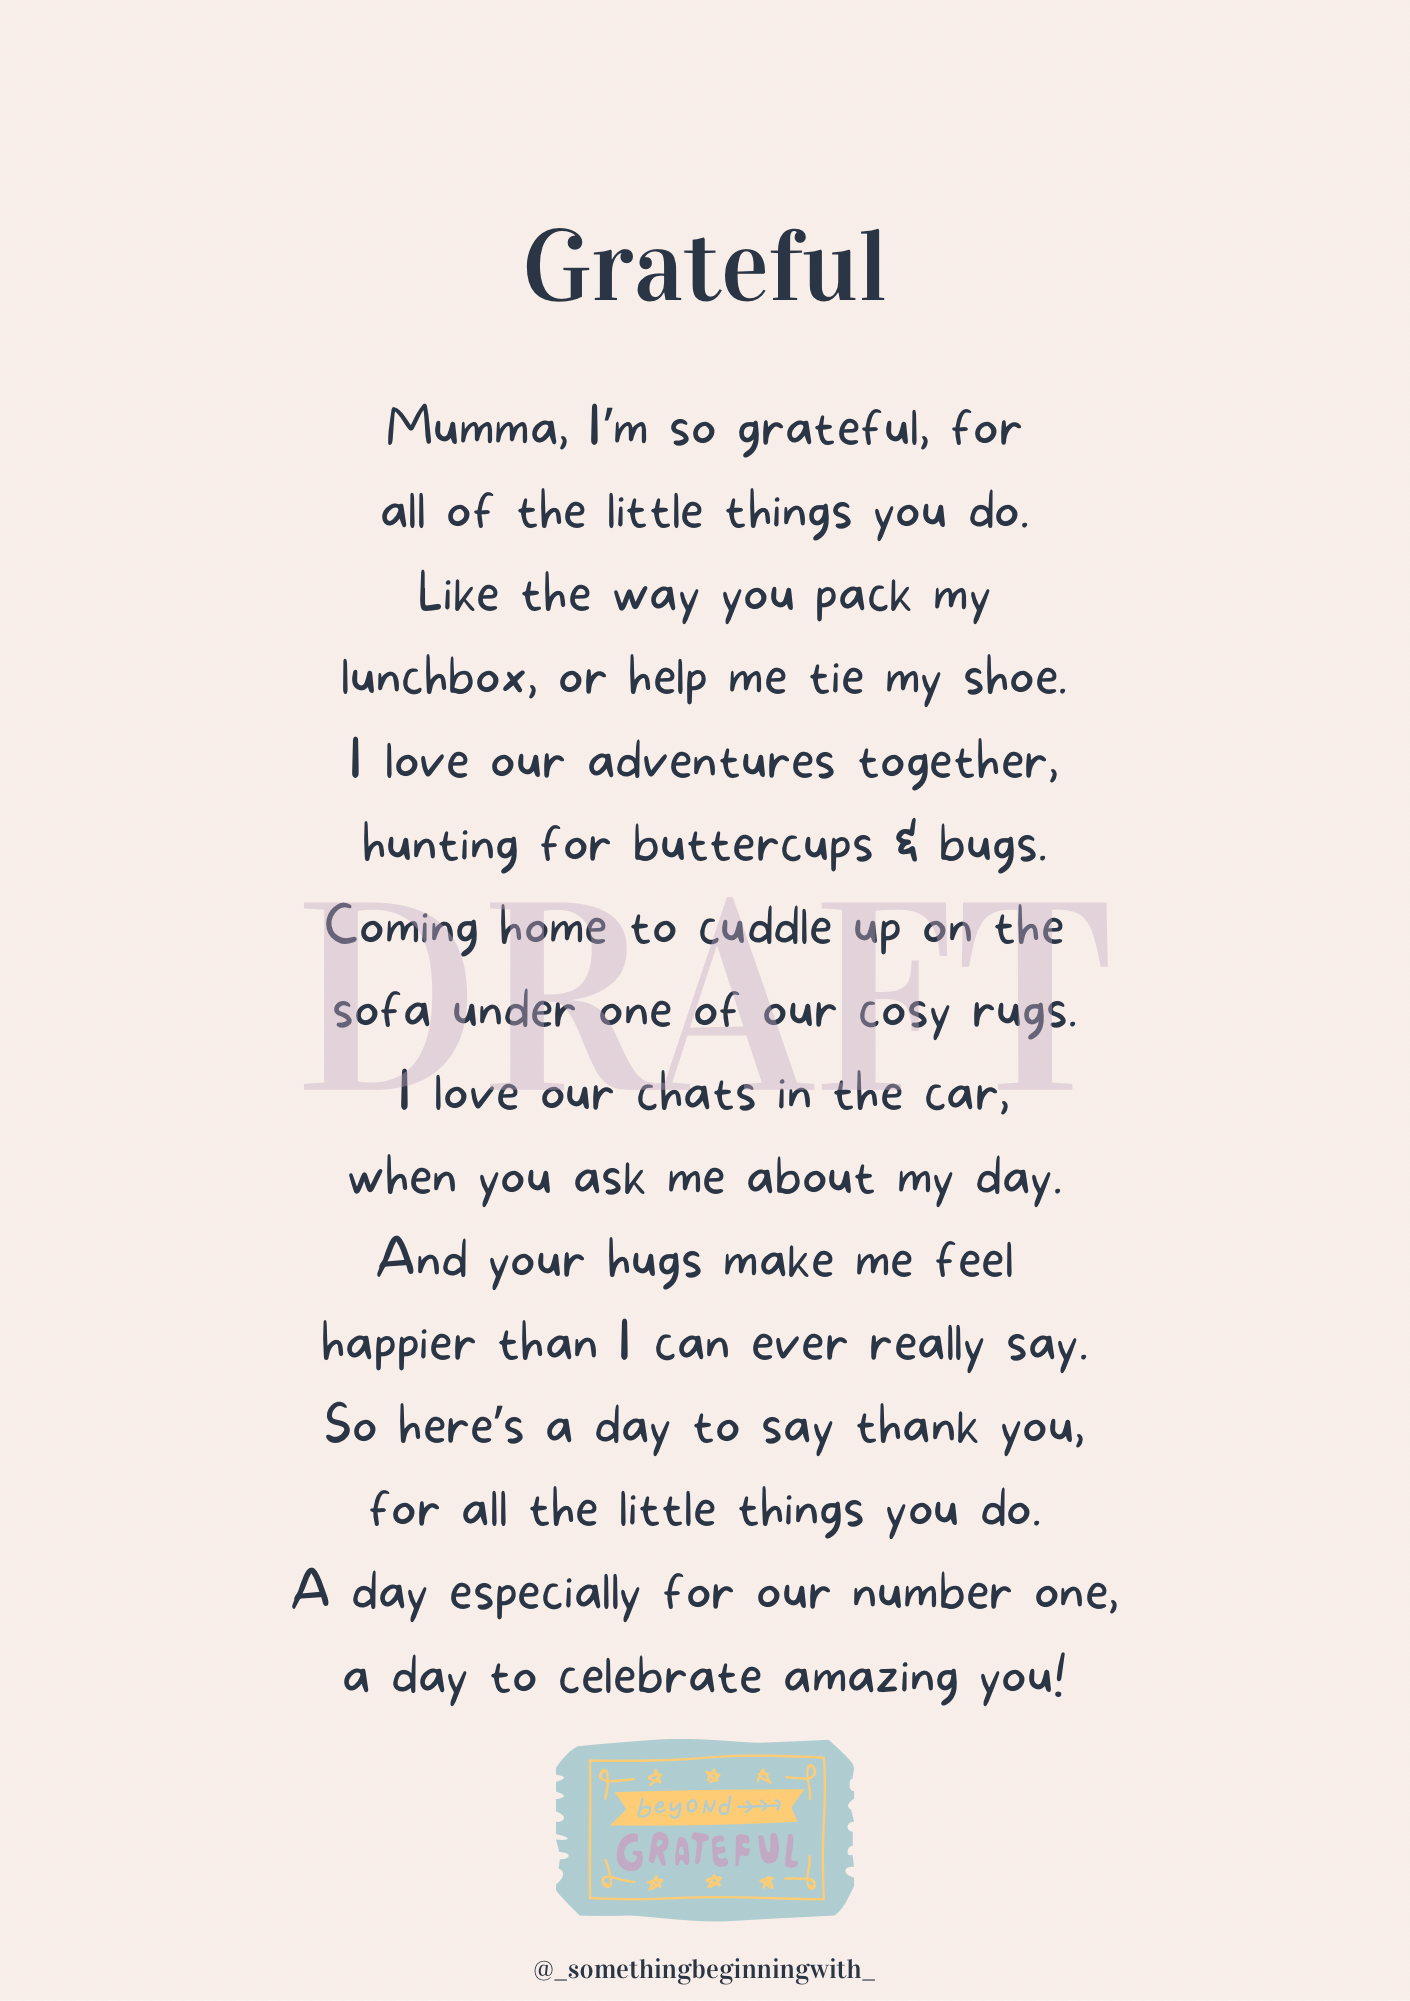 Grateful
Mumma, I'm so grateful, for
all of the little things you do.
Like the way you pack my
lunchbox, or help me tie my shoe.
I love our adventures together,
hunting for buttercups & bugs.
Coming home to cuddle up on the
sofa under one of our cosy rugs.
DRAFT
I love our chats in the car,
when you ask me about my day.
And your hugs make me feel
happier than I can ever really say.
So here's a day to say thank you,
for all the little things you do.
A day especially for our number one,
a day to celebrate amazing you!
beyond
GRATEFUL
@_somethingbeginningwith_